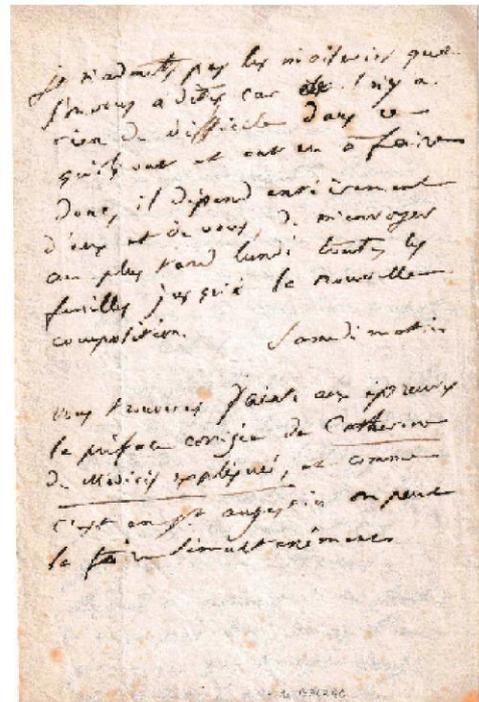 Je n'admets pas les moitiers que
l'on vous a dites car il n'y a
rien de difficile dans ce
qu'ils ont et ont eu à faire
Donc, il dépend entièrement
d'eux et de vous, de m'envoyer
au plus tard lundi toutes les
feuilles jusqu'à la nouvelle
composition. Samedi matin
vous trouverez joint aux épreuves
la préface corrigée de Catherine
de Médicis expliquée, et comme
c'est en st augustin on peut
la faire simultanément